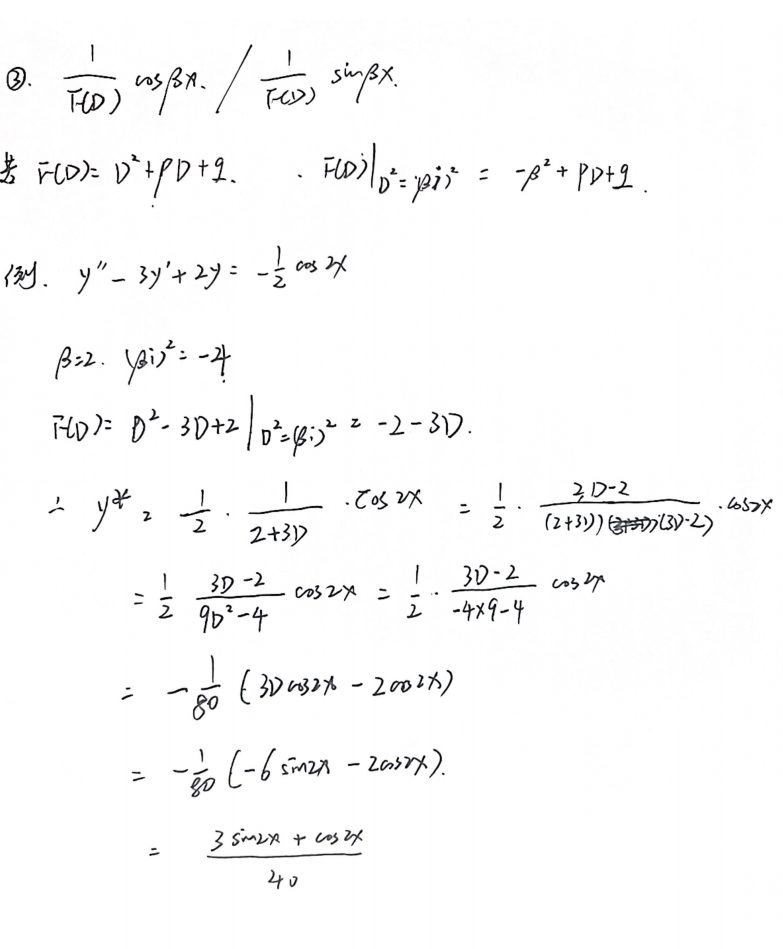 ③. 1/F(D) cosβx. / 1/F(D) sinβx.
若 F(D)= D²+PD+q. . F(D)|D²=(βi)² = -β²+PD+q.
例. y″-3y′+2y= -1/2 cos 2x
β=2. (βi)²=-4
F(D)= D²-3D+2|D²=(βi)² = -2-3D.
∴ y* = 1/2 · 1/(2+3D) ·cos 2x = 1/2 · (3D-2)/((2+3D)(3D-2)) ·cos2x
= 1/2 (3D-2)/(9D²-4) cos2x = 1/2 · (3D-2)/(-4×9-4) cos2x
= -1/80 (3Dcos2x - 2cos2x)
= -1/80 (-6 sin2x - 2cos2x).
= (3 sin2x + cos2x)/40